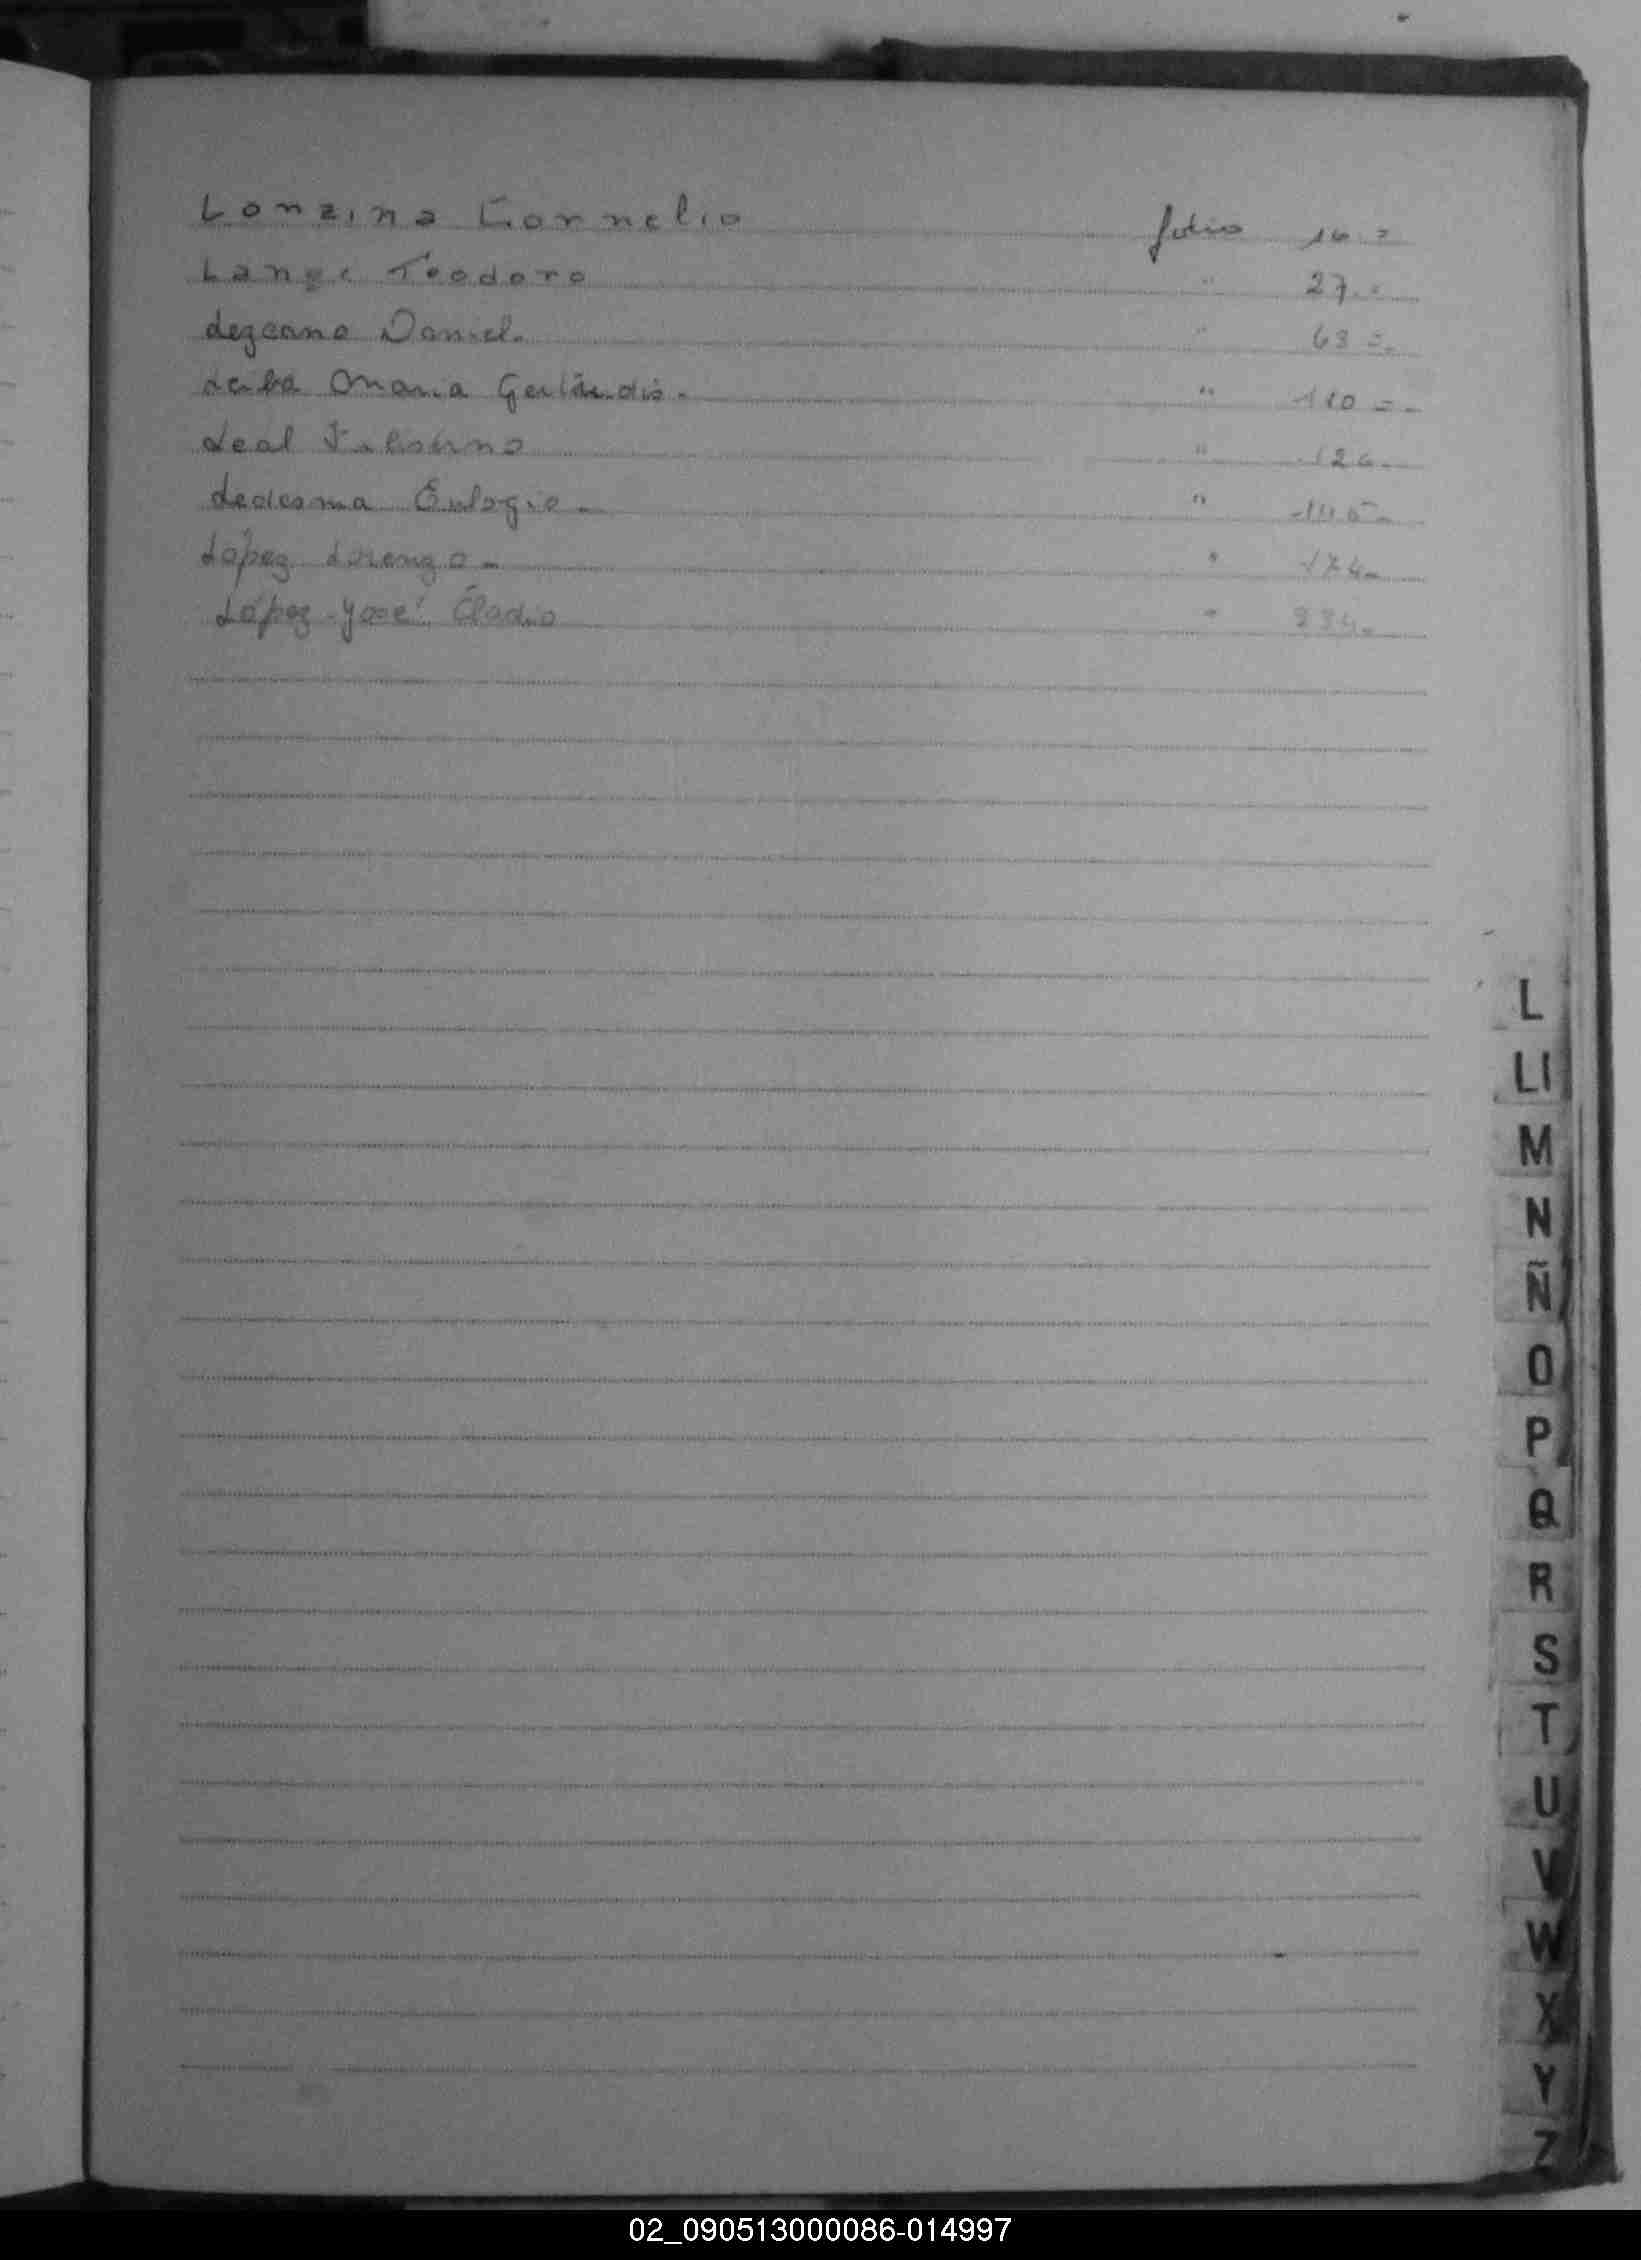 Lonzina Cornelio folio 16.=
Lange Teodoro " 27.=
Lezcano Daniel. " 68 =.
Leiba Maria " 110 =.
Leal "
Ledesma Eulogio. "
López Lorenzo. " 174.
López José Eladio " 224.
L
Ll
M
N
Ñ
O
P
Q
R
S
T
U
V
W
X
Y
Z
02_090513000086-014997